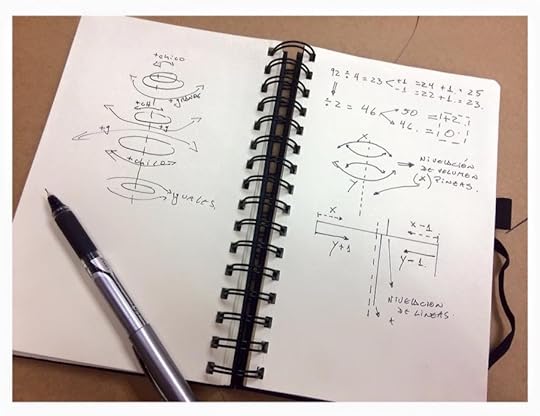 +CHICO
+GRANDE
+CH
+g
+g
+CHICO
IGUALES.
92 ÷ 4 = 23
+1 = 24 + 1 = 25
-1 = 22 + 1 = 23.
÷ 2 = 46
50 = +2
46 = 0
X
Y
NIVELACIÓN
DE VOLUMEN
(X) PÍNEAS.
X
X-1
Y+1
Y-1
NIVELACIÓN
DE LÍNEAS.
+